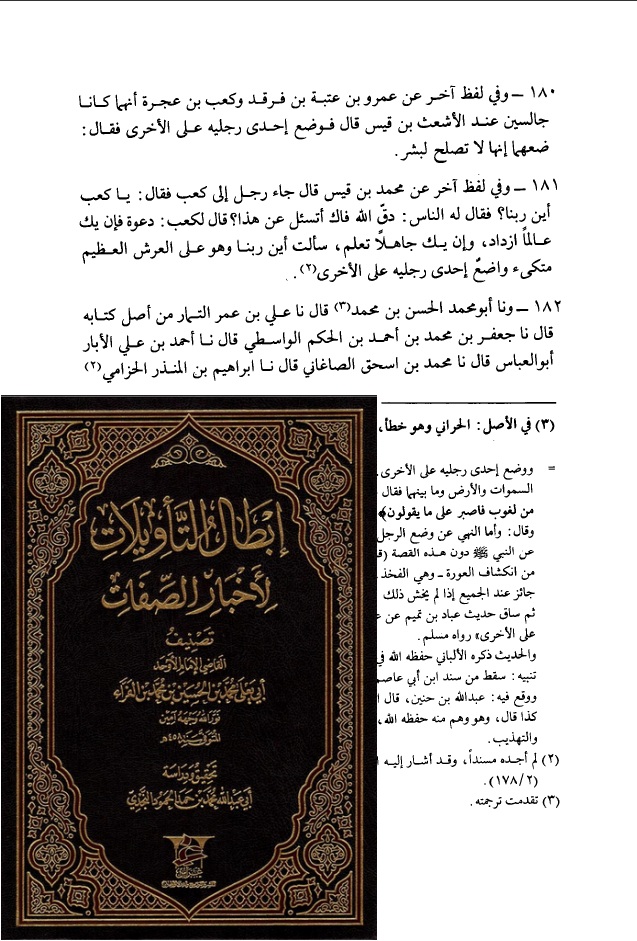 ١٨٠ ــ وفي لفظ آخر عن عمرو بن عتبة بن فرقد وكعب بن عجرة أنهما كانا
جالسين عند الأشعث بن قيس قال فوضع إحدى رجليه على الأخرى فقال :
ضعهما إنها لا تصلح لبشر .
١٨١ ــ وفي لفظ آخر عن محمد بن قيس قال جاء رجل إلى كعب فقال : يا كعب
أين ربنا؟ فقال له الناس : دقّ الله فاك أتسئل عن هذا؟ قال لكعب : دعوة فإن يك
عالماً ازداد، وإن يك جاهلًا تعلم، سألت أين ربنا وهو على العرش العظيم
متكىء واضعٌ إحدى رجليه على الأخرى(٢) .
١٨٢ ــ ونا أبومحمد الحسن بن محمد(٣) قال نا علي بن عمر التمار من أصل كتابه
قال نا جعفر بن محمد بن أحمد بن الحكم الواسطي قال نا أحمد بن علي الأبار
أبوالعباس قال نا محمد بن اسحق الصاغاني قال نا ابراهيم بن المنذر الحزامي(٢)
(٣) في الأصل : الحراني وهو خطأ،
= ووضع إحدى رجليه على الأخرى
السموات والأرض وما بينهما فقال
من لغوب فاصبر على ما يقولون﴾
وقال : وأما النهي عن وضع الرجل
عن النبي ﷺ دون هذه القصة
من انكشاف العورة ــ وهي الفخذ
جائز عند الجميع إذا لم يخش ذلك
ثم ساق حديث عباد بن تميم عن
على الأخرى» رواه مسلم .
والحديث ذكره الألباني حفظه الله في
تنبيه : سقط من سند ابن أبي عاصم
ووقع فيه : عبدالله بن حنين، قال
كذا قال، وهو وهم منه حفظه الله،
والتهذيب .
(٢) لم أجده مسنداً، وقد أشار إليه
(١٧٨/٢) .
(٣) تقدمت ترجمته .
إبطال التأويلات
لأخبار الصفات
تصنيف
القاضي الإمام الأوحد
أبي يعلى محمد بن الحسين بن محمد بن الفراء
نور الله وجهه آمين
المتوفى سنة ٤٥٨هـ
تحقيق ودراسة
أبي عبدالله محمد بن حمد الحمود النجدي